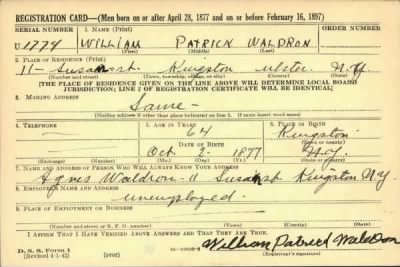 REGISTRATION CARD—(Men born on or after April 28, 1877 and on or before February 16, 1897)
SERIAL NUMBER 1. NAME (Print) ORDER NUMBER
U 1779 WILLIAM PATRICK WALDRON
(First) (Middle) (Last)
2. PLACE OF RESIDENCE (Print)
11 - Susan st. Kingston Ulster N.Y.
(Number and street) (Town, township, village, or city) (County) (State)
[THE PLACE OF RESIDENCE GIVEN ON THE LINE ABOVE WILL DETERMINE LOCAL BOARD
JURISDICTION; LINE 2 OF REGISTRATION CERTIFICATE WILL BE IDENTICAL]
3. MAILING ADDRESS
Same -
[Mailing address if other than place indicated on line 2. If same insert word same]
4. TELEPHONE 5. AGE IN YEARS 6. PLACE OF BIRTH
- 64 Kingston
DATE OF BIRTH (Town or county)
- Oct 2 - 1877 N.Y.
(Exchange) (Number) (Mo.) (Day) (Yr.) (State or country)
7. NAME AND ADDRESS OF PERSON WHO WILL ALWAYS KNOW YOUR ADDRESS
Agnes Waldron - 11 Susan st Kingston N.Y.
8. EMPLOYER'S NAME AND ADDRESS
unemployed -
9. PLACE OF EMPLOYMENT OR BUSINESS
(Number and street or R. F. D. number) (Town) (County) (State)
I AFFIRM THAT I HAVE VERIFIED ABOVE ANSWERS AND THAT THEY ARE TRUE.
D. S. S. Form 1
(Revised 4-1-42) (over)
William Patrick Waldron
(Registrant's signature)